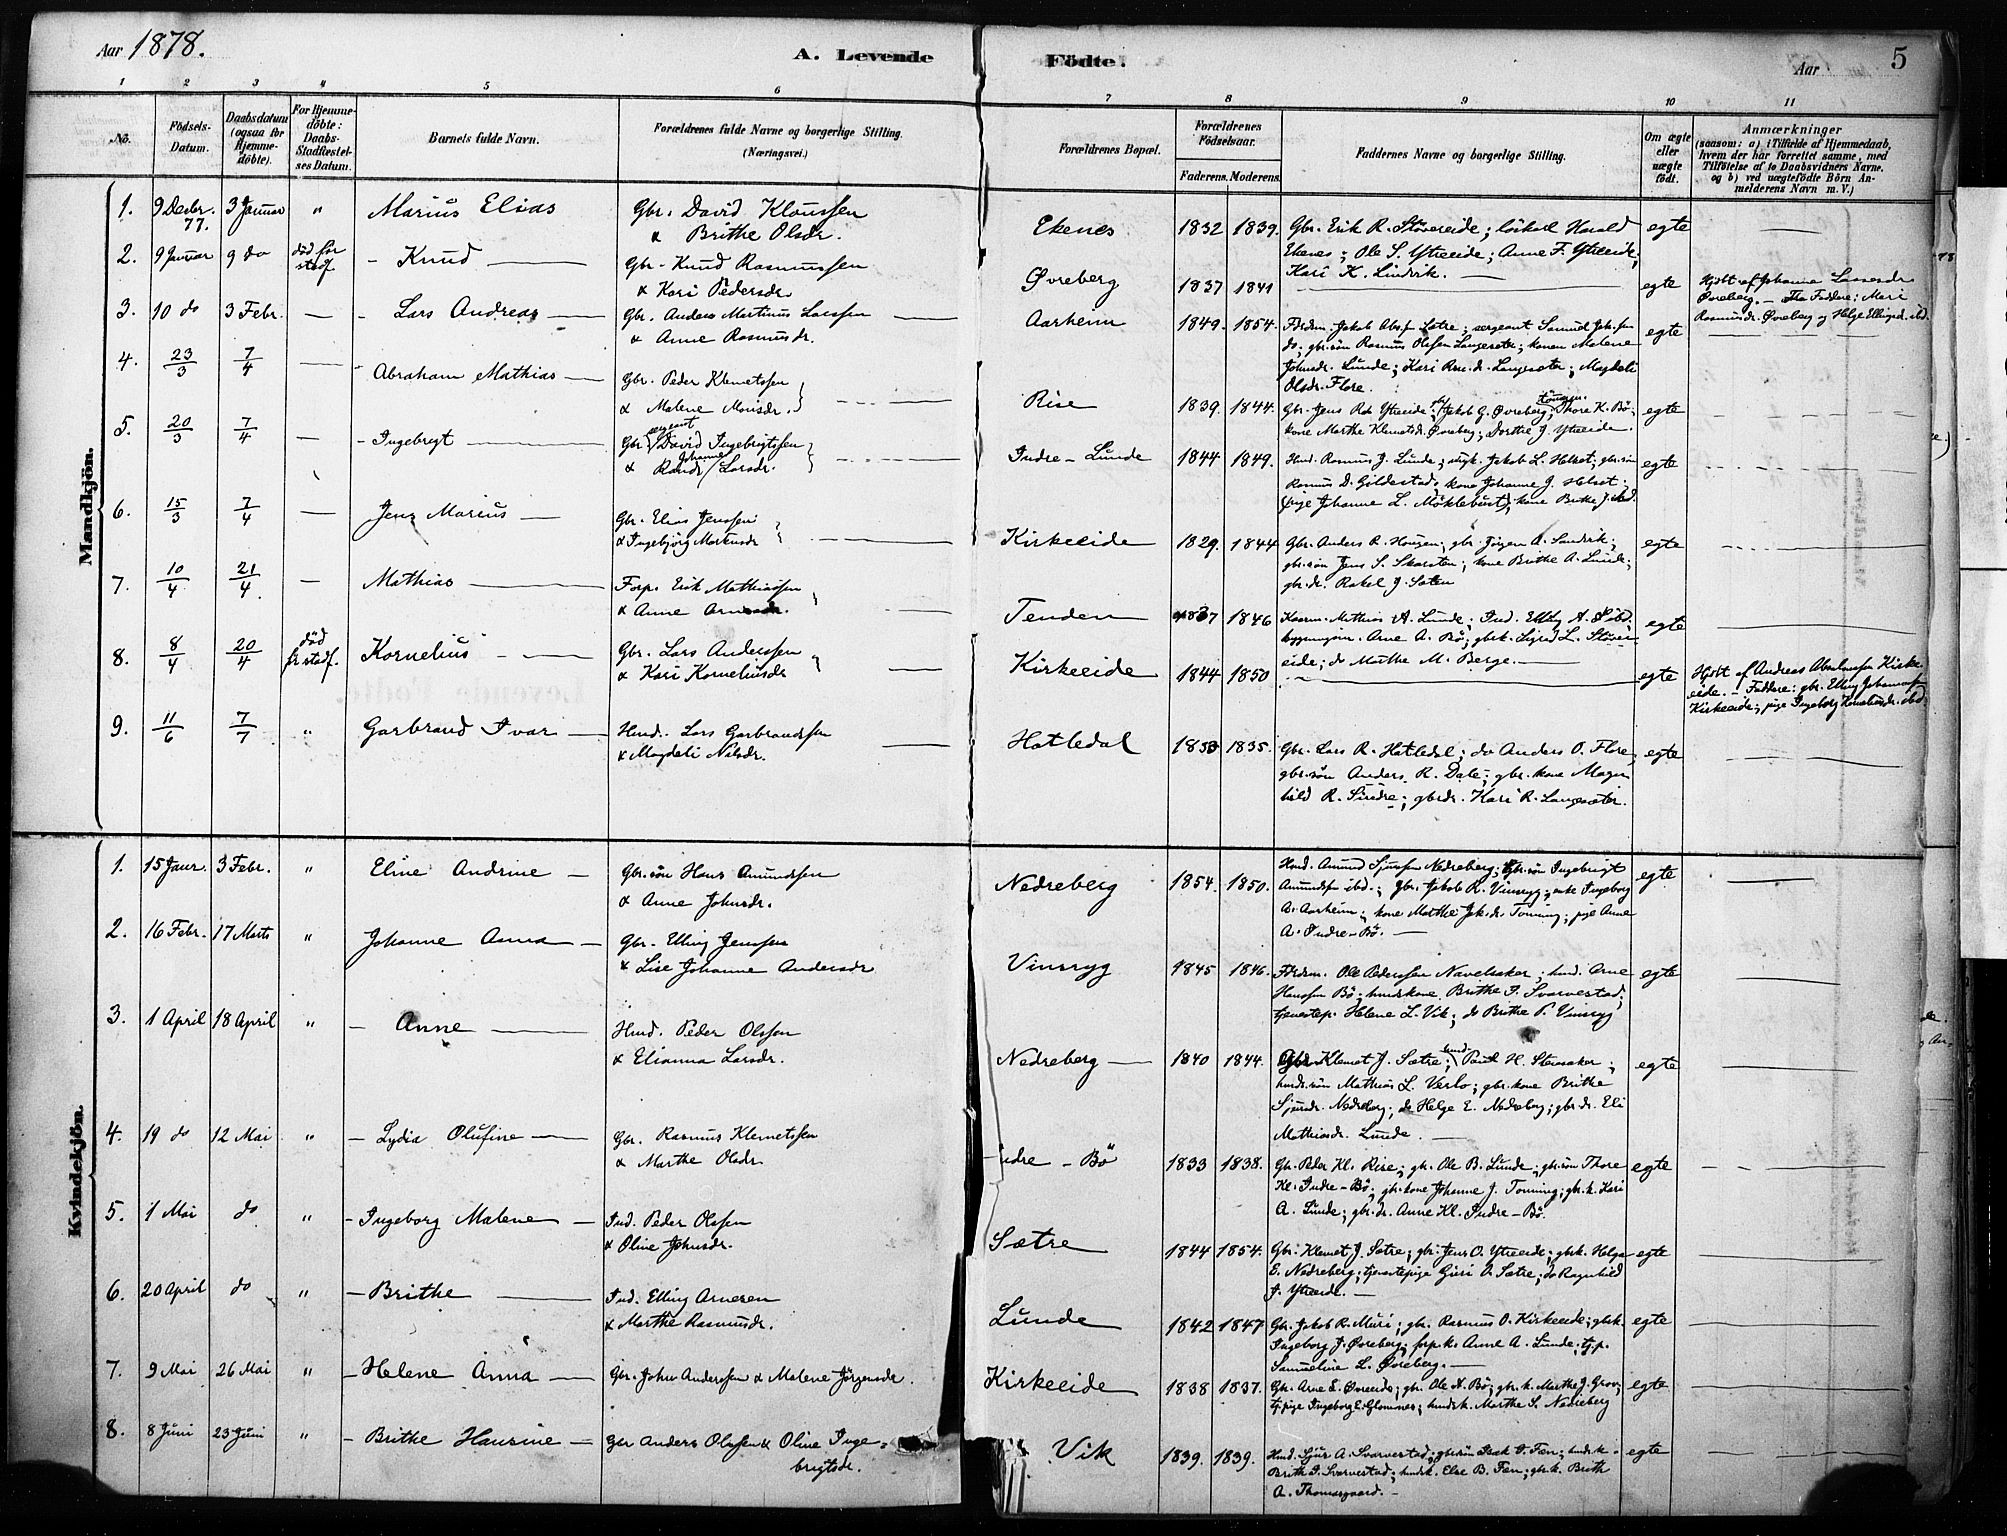 Aar 1878.
A. Levende Födte.
Aar
5
1 2 3 4 5 6 7 8 9 10 11
No.
Födsels-
Datum.
Daabsdatum
(ogsaa for
Hjemme-
döbte).
For Hjemme-
döbte:
Daabs-
Stadfæstel-
ses Datum.
Barnets fulde Navn.
Forældrenes fulde Navne og borgerlige Stilling.
(Næringsvei.)
Forældrenes Bopæl.
Forældrenes
Födselsaar.
Faderens. Moderens.
Faddernes Navne og borgerlige Stilling.
Om ægte
eller
uægte
födt.
Anmærkninger
(saasom: a) i Tilfælde af Hjemmedaab,
hvem der har forrettet samme, med
Tilföielse af to Daabsvidners Navne.
og b) ved uægtefödte Börn An-
melderens Navn m. V.)
Mandkjön.
1. 9 Decbr. 77. 3 Januar " Marius Elias
Gbr. David Klaussen
& Brithe Olsdr.
Ekenes 1832 1839.
Gbr. Erik R. Störereide; Harald
Ekenes; Ole S. Ytreeide; Anne F. Ytreeide;
Kari K. Lindvik.
egte
2. 9 Januar 9 do död før stadf. - Knud
Gbr. Knud Rasmussen
& Kari Pedersdr.
Øvreberg 1837 1841 egte
Hjdbt af Johanne Lassesdr
Øvreberg. - Faddere: Mari
Rasmusdr. Øvreberg og Helge Ellingsd. ibd.
3. 10 do 3 Febr. - Lars Andreas
Gbr. Anders Martinus Larssen
& Anne Rasmusdr.
Aarheim 1849. 1854.
Jakob Abr.s. Sætre; sergeant Samuel Joh.sen
do; gbr.sön Rasmus Olssen Langesæter; konen Malene
Johnsdr. Lunde; Kari Ras.dr. Langesæter; Magdeli
Olsdr. Flore.
egte
4. 23/3 7/4 - Abraham Mathias
Gbr. Peder Klemetssen
& Malene Monsdr.
Rise 1839. 1844.
Gbr. Jens Ras. Ytreeide; Jakob G. Øvreberg; Thore K. Bö;
kone Marthe Klemetsd. Øvreberg; Dorthe J. Ytreeide.
egte
5. 20/3 7/4 - Ingebrigt
sergeant
Gbr. David Ingebrigtssen
& Randi Johanne Larsdr.
Indre-Lunde 1844 1849.
Hmd. Rasmus J. Lunde; Jakob L. Helset; gbr.sön
Rasmus D. Gildestad; kone Johanne J. Helset;
pige Johanne L. Möklebust; kone Brithe J. ibd.
egte
6. 15/3 7/4 - Jens Marius
Gbr. Elias Jenssen
& Ingebjörg Martensdr
Kirkeeide 1829. 1844
Gbr. Anders R. Haugen; gbr. Jörgen A. Lundvik;
gbr.sön Jens S. Skarsten; kone Brithe A. Lunde;
gbr.dr. Rakel J. Sæten
egte
7. 10/4 21/4. - Mathias
Forp. Erik Mathiassen
& Anne Arnesdr.
Tenden 1837 1846
Mathias A. Lunde; Ind. Elling A. Bö
Arne A. Bö; gbr.k. Sigrid L. Störer
eide; do Marthe M. Berge.
egte
8. 8/4 20/4 död før stadf. Kornelius
Gbr. Lars Anderssen
& Kari Korneliusdr
Kirkeeide 1844 1850 egte
Hjdbt af Andreas Abrahamsen Kirke-
eide. - Faddere: gbr. Elling Johannessen
Kirkeeide; pige Ingeborg Korneliusdr. ibd
9. 11/6 7/7 " Garbrand Ivar
Hmd. Lars Garbrandssen
& Magdeli Nilsdr.
Hatledal 1833 1835.
Gbr. Lars R. Hatledal; do Anders O. Flore;
gbr.sön Anders R. Dale; gbr. kone Magn
hild R. Sindre; gbr.dr. Kari R. Langesæter.
egte
Kvindekjön.
1. 15 Janr. 3 Febr. " Eline Andrine
Gbr.sön Hans Amundssen
& Anne Johnsdr.
Nedreberg 1854. 1850.
Hmd. Amund Sjurssen Nedreberg; gbr.sön Ingebrigt
Amundss. ibd.; gbr. Jakob R. Vinsryg; enke Ingeborg
A. Aarheim; kone Marthe Jak.dr. Tonning; pige Anne
A. Indre-Bö.
egte
2. 16 Febr. 17 Marts " Johanne Anna
Gbr. Elling Jenssen
& Lise Johanne Andersdr
Vinsryg 1845 1846.
Ole Pederssen Navelsaker; hmd. Arne
Hanssen Bö; hmdskone Brithe J. Svarvestad;
tjenestep. Helene L. Vik; do Brithe P. Vinsryg
egte
3. 1 April 18 April " - Anne
Hmd. Peder Olssen
& Elianna Larsdr.
Nedreberg 1840 1844.
Gbr. Klemet J. Sætre; hmd. Paul H. Stensaker;
hmds.sön Mathias L. Verlo; gbr. kone Brithe
Sjursdr. Nedreberg; do Helge E. Nedreberg; gbr.dr. Eli
Mathiasdr. Lunde.
egte
4. 19 do 12 Mai " - Lydia Olufine
Gbr. Rasmus Klemetssen
& Marthe Olsdr
Indre-Bö 1833 1838.
Gbr. Peder Kl. Rise; gbr. Ole B. Lunde; gbr.sön Thore
Kl. Indre-Bö; gbr.kone Johanne J. Tonning; gbr.k. Kari
A. Lunde; gbr.dr. Anne Kl. Indre-Bö.
egte
5. 1 Mai do " - Ingeborg Malene
Ind. Peder Olssen
& Oline Johnsdr.
Sætre 1844 1854.
Gbr. Klemet J. Sætre; gbr. Jens O. Ytreeide; gbr.k. Helga
E. Nedreberg; tjenestepige Guri O. Sætre; do Ragnhild
J. Ytreeide.
egte
6. 20 April do " - Brithe
Ind. Elling Arnesen
& Marthe Rasmusdr.
Lunde 1842 1847
Gbr. Jakob R. Muri; gbr. Rasmus O. Kirkeeide; gbr.k.
Ingeborg J. Øvreberg; forp.k. Anne A. Lunde; tj.p.
Samueline L. Øvreberg.
egte
7. 9 Mai 26 Mai " - Helene Anna
Gbr. John Anderssen & Malene Jörgensdr.
Kirkeeide 1838 1837.
Gbr. Arne S. Øvreeide; gbr. Ole A. Bö; gbr.k. Marthe J. Grov;
tj.pige Ingeborg E. Glomnes; hmds.k. Marthe S. Nedreberg
egte
8. 8 Juni 23 Juni " - Brithe Hansine
Gbr Anders Olssen & Oline Inge-
brigtsdr.
Vik 1839. 1839.
Hmd. Sjur A. Svarvestad; gbr.sön Isak O. Fæn; hmds.k.
Brith J. Svarvestad; hmdsk. Else B. Fæn; gbr.k. Brith
A. Thomasgaard.
egte